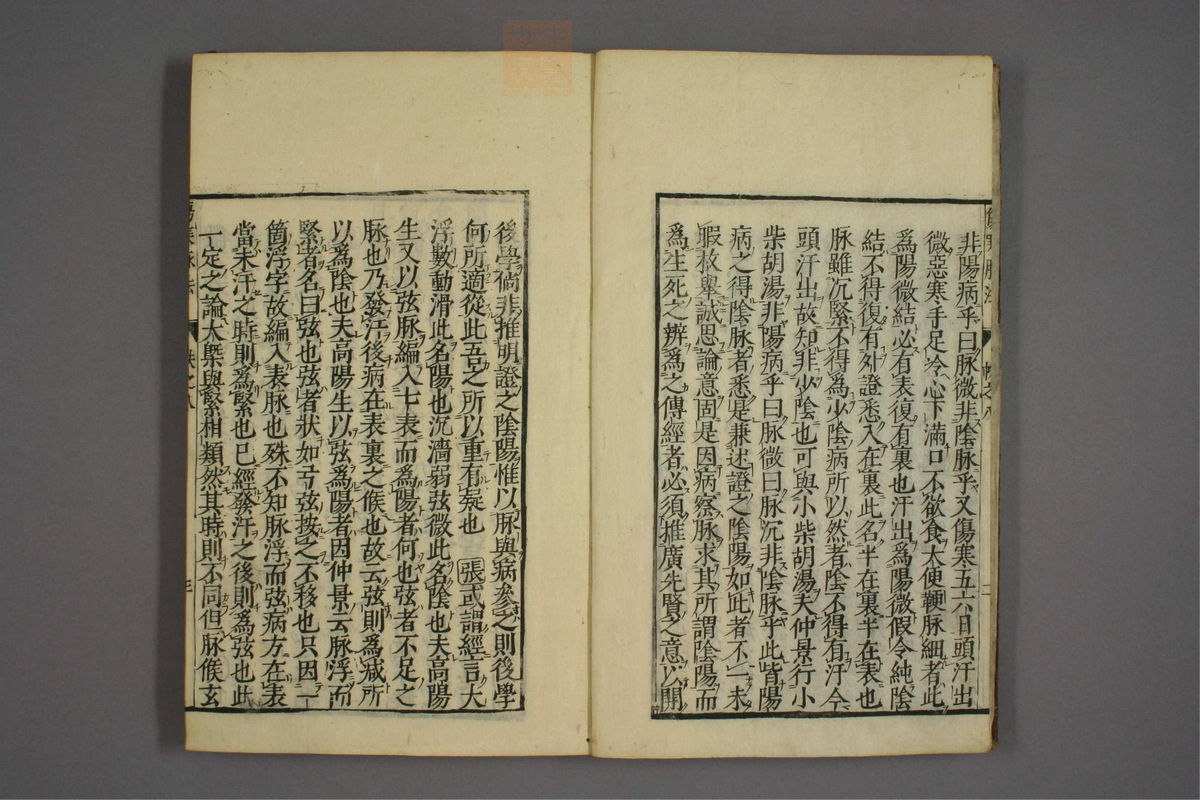 非陽病乎曰脉微非陰脉乎又傷寒五六日頭汗出
微惡寒手足冷心下滿口不欲食大便鞕脉細者此
爲陽微結必有表復有裏也汗出爲陽微假令純陰
結不得復有外證悉入在裏此名半在裏半在表也
脉雖沉緊不得爲少陰病所以然者陰不得有汗今
頭汗出故知非少陰也可與小柴胡湯夫仲景行小
柴胡湯非陽病乎曰脉微曰脉沉非陰脉乎此皆陽
病之得陰脉者悉是兼述證之陰陽如此者不一未
暇枚舉誠思論意固是因病察脉求其所謂陰陽而
爲生死之辨爲之傳經者必須推廣先賢之意以開
後學倘非推明證之陰陽惟以脉與病參之則後學
何所適從此吾之所以重有疑也 張或謂經言大
浮數動滑此名陽也沉濇弱弦微此名陰也夫高陽
生又以弦脉編入七表而爲陽者何也弦者不足之
脉也乃發汗後病在表裏之候也故云弦則爲減所
以爲陰也夫高陽生以弦爲陽者因仲景云脉浮而
緊者名曰弦也弦者狀如弓弦按之不移也只因一
箇浮字故編入表脉也殊不知脉浮而弦病方在表
當未汗之時則爲緊也已經發汗之後則爲弦也此
一定之論大槩與緊相類然其時則不同但二脉候玄